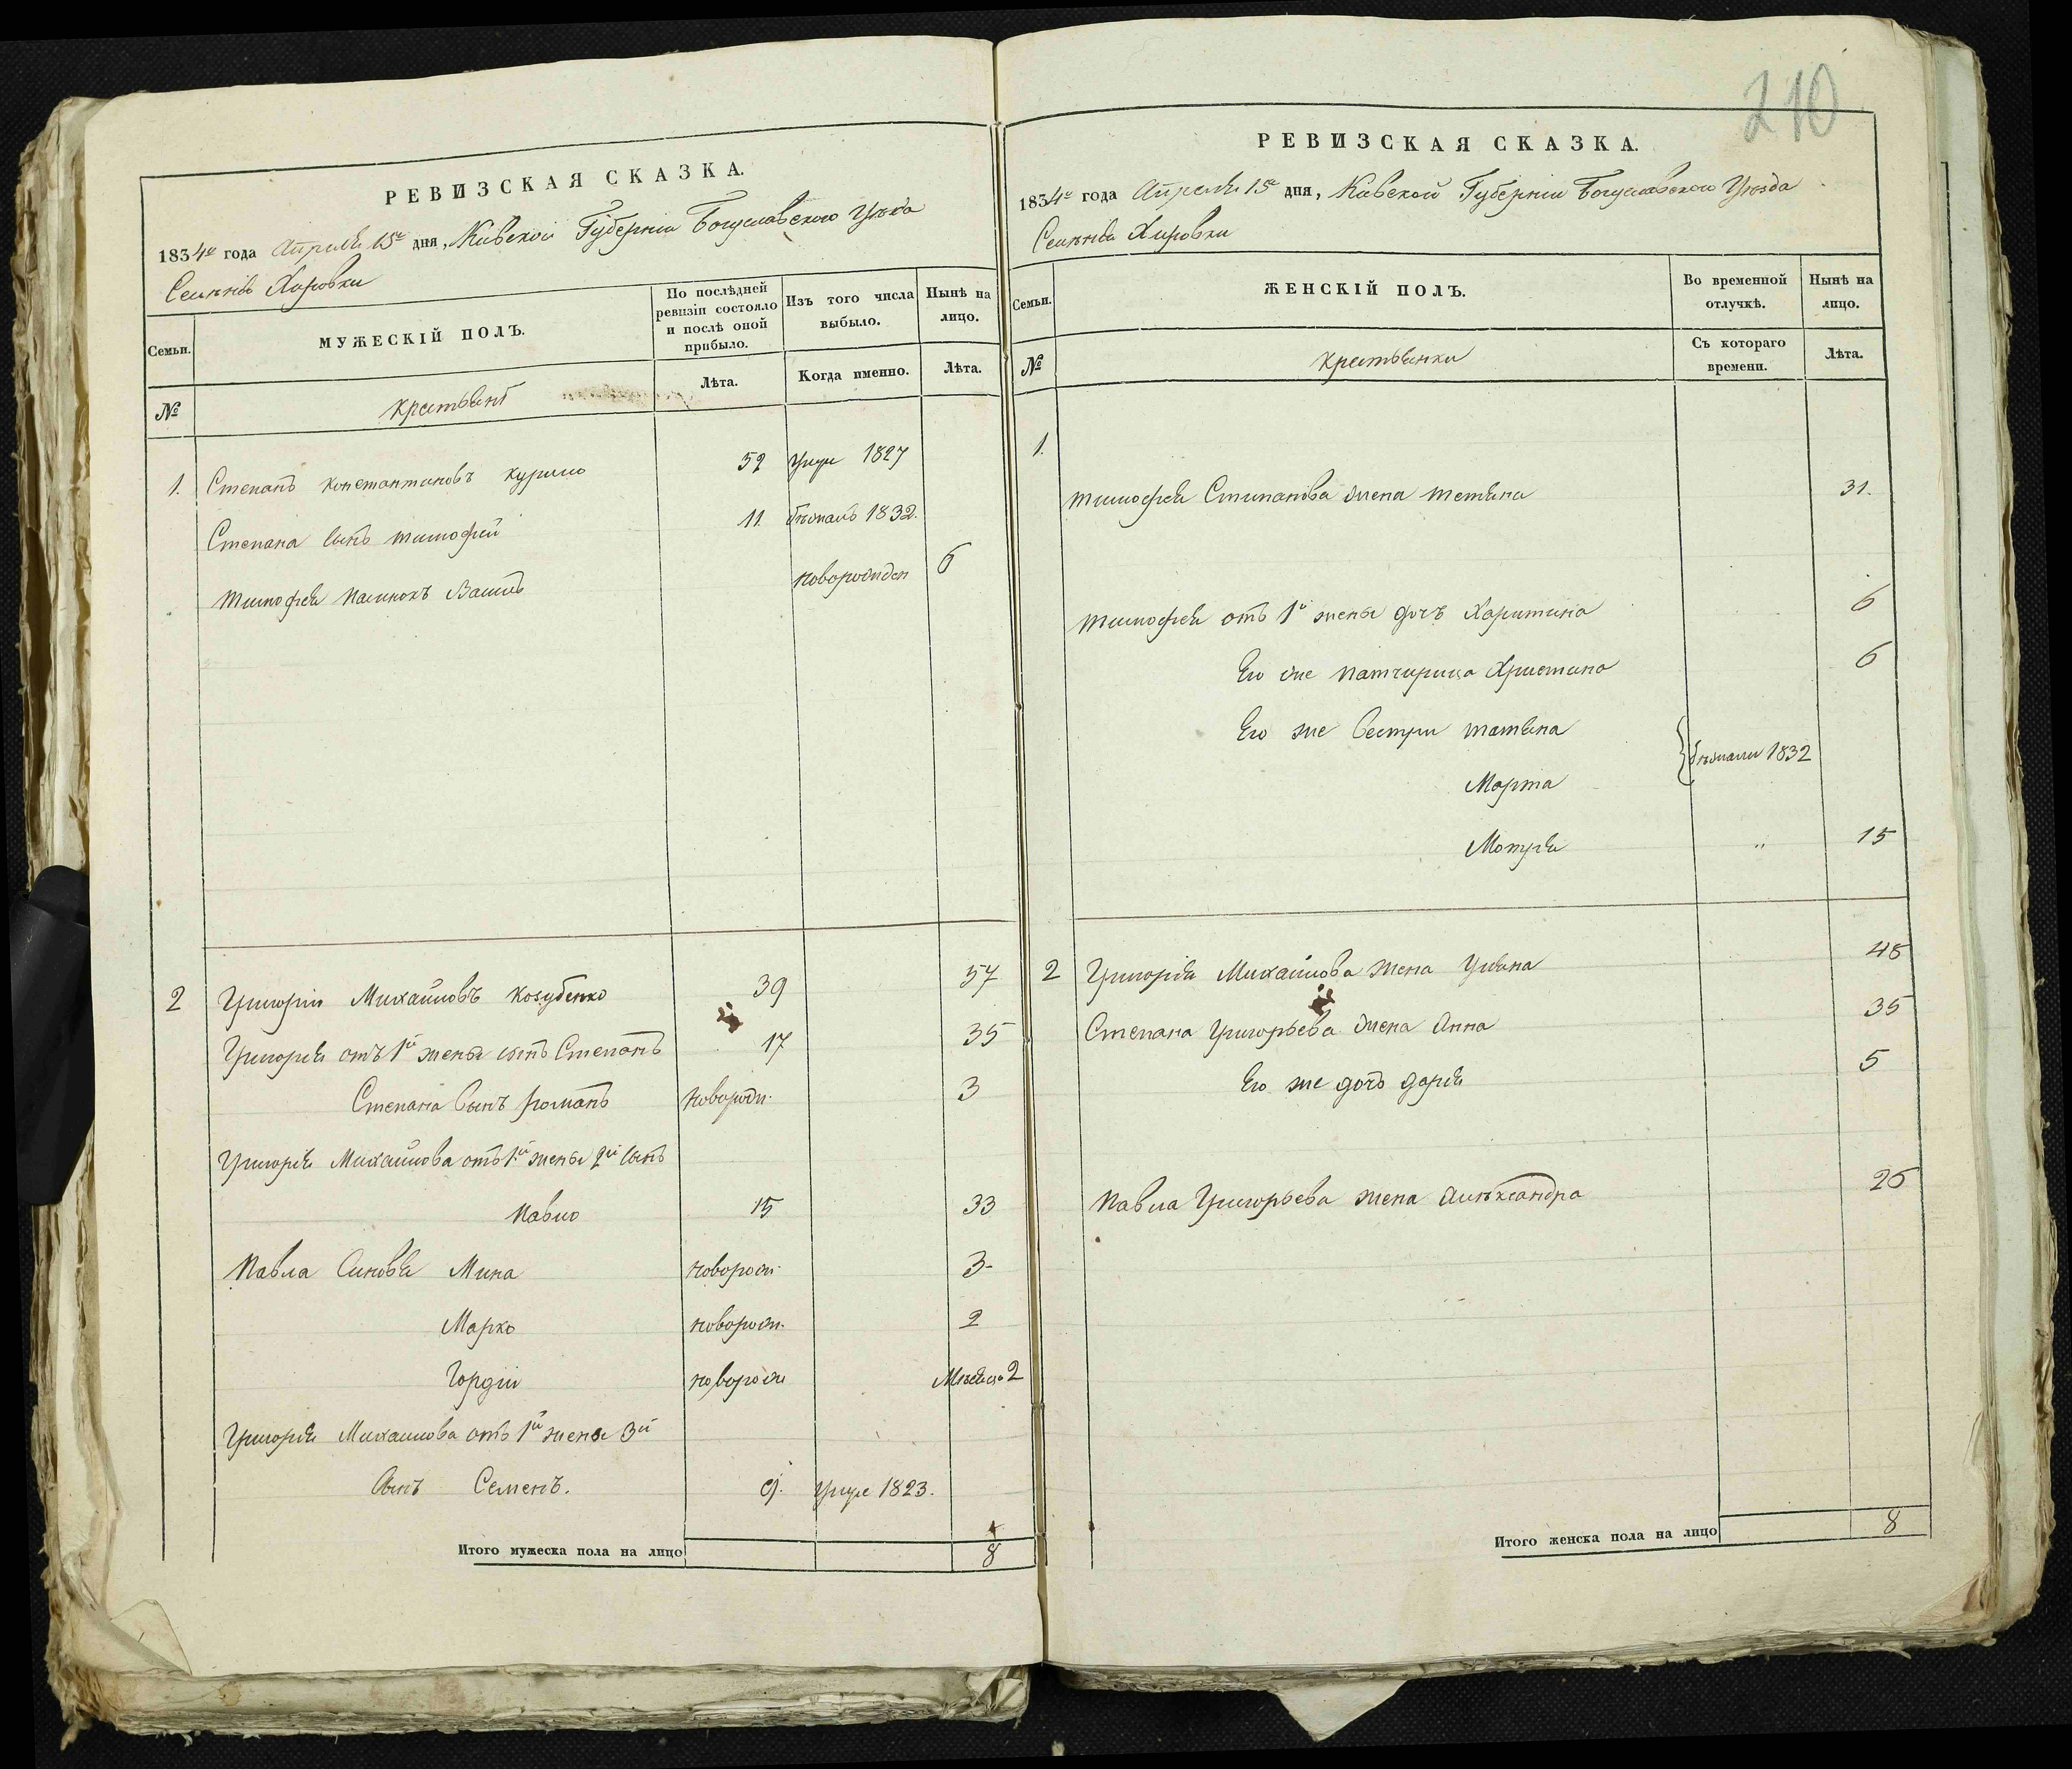 210
РЕВИЗСКАЯ СКАЗКА.
1834го года Апреля 15го дня, Киевской Губерніи Богуславского Уезда
Селенія Хировки
Семьи.
МУЖЕСКІЙ ПОЛЪ.
По послѣдней ревизіи состояло и послѣ оной прибыло.
Изъ того числа выбыло.
Нынѣ на лицо.
№
крестьянѣ
Лѣта.
Когда именно.
Лѣта.
1. Степанъ Константиновъ 52 умре 1827
Степана сынъ тимофей 11 бежалъ 1832.
тимофея пасинокъ Василь новорожден 6
2 Григорій Михайловъ козубенко 39 57
Григорія отъ 1й жены сынъ Степанъ 17 35
Степана сынъ романъ новорож. 3
Григорія Михайлова отъ 1й жены 2й сынъ
Павло 15 33
Павла синовья Мина новорож. 3
Марко новорож. 2
Гордій новорож 2
Григорія Михайлова отъ 1й жены 3й
сынъ Семенъ. 9. умре 1823.
Итого мужеска пола на лицо 8
РЕВИЗСКАЯ СКАЗКА.
1834го года Апреля 15го дня, Киевской Губерніи Богуславского Уезда
Селенія Хировки
Семьи.
ЖЕНСКІЙ ПОЛЪ.
Во временной отлучкѣ.
Нынѣ на лицо.
№
крестьянки
Съ котораго времени.
Лѣта.
1.
тимофея Степанова жена 31.
тимофея отъ 1й жены дочъ Харитина 6
Его же патчирица Христина 6
Его же Сестры татьяна
Марта
бежали 1832
Мотря " 15
2 Григорія Михайлова жена Уляна 48
Степана Григорьева жена Анна 35
Его же дочъ дарія 5
Павла Григорьева жена александра 26
Итого женска пола на лицо 8